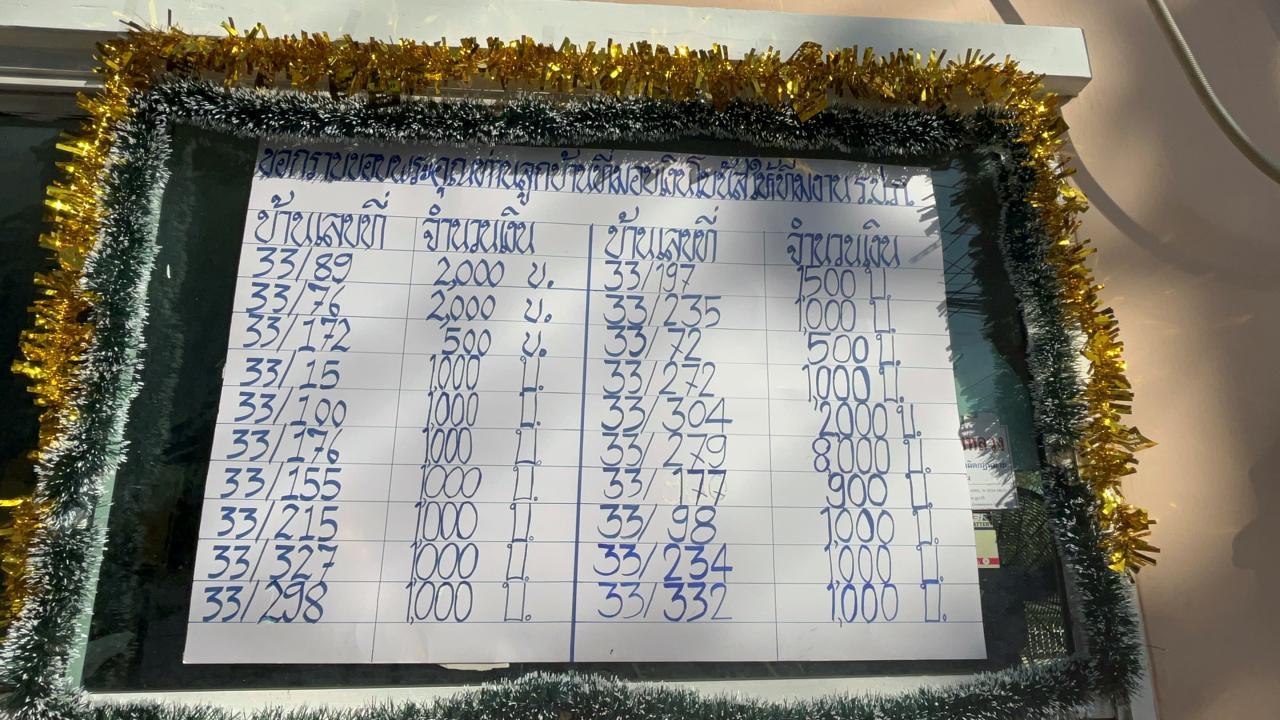 ขอกราบขอบพระคุณท่านลูกบ้านที่มอบเงินโบนัสให้ทีมงาน ร.ป.ภ
บ้านเลขที่ จำนวนเงิน บ้านเลขที่ จำนวนเงิน
33/89 2,000 บ. 33/197 1,500 บ.
33/76 2,000 บ. 33/235 1,000 บ.
33/172 500 บ. 33/72 500 บ.
33/15 1,000 บ. 33/272 1,000 บ.
33/100 1,000 บ. 33/304 2,000 บ.
33/176 1,000 บ. 33/279 8,000 บ.
33/155 1,000 บ. 33/177 900 บ.
33/215 1,000 บ. 33/98 1,000 บ.
33/327 1,000 บ. 33/234 1,000 บ.
33/298 1,000 บ. 33/332 1,000 บ.